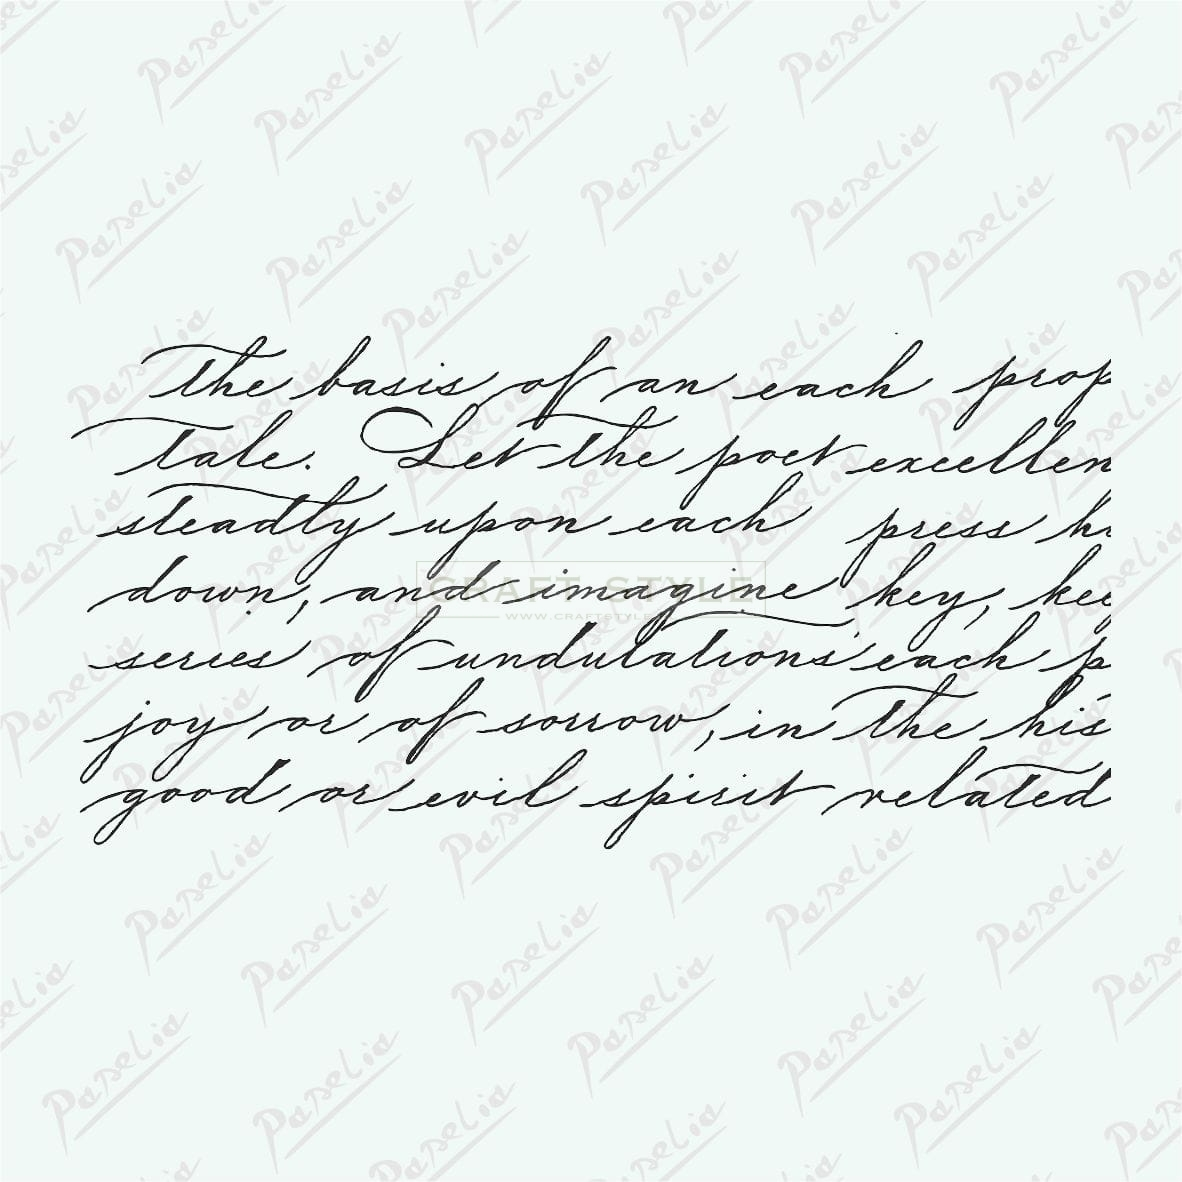 The basis of an each prop
tale. Let the poet excellen
steadtly upon each press h
down, and imagine key, kee
series of undulations each p
joy or of sorrow, in the his
good or evil spirit related
Papelia
CRAFT STYLE
WWW.CRAFTSTYLE